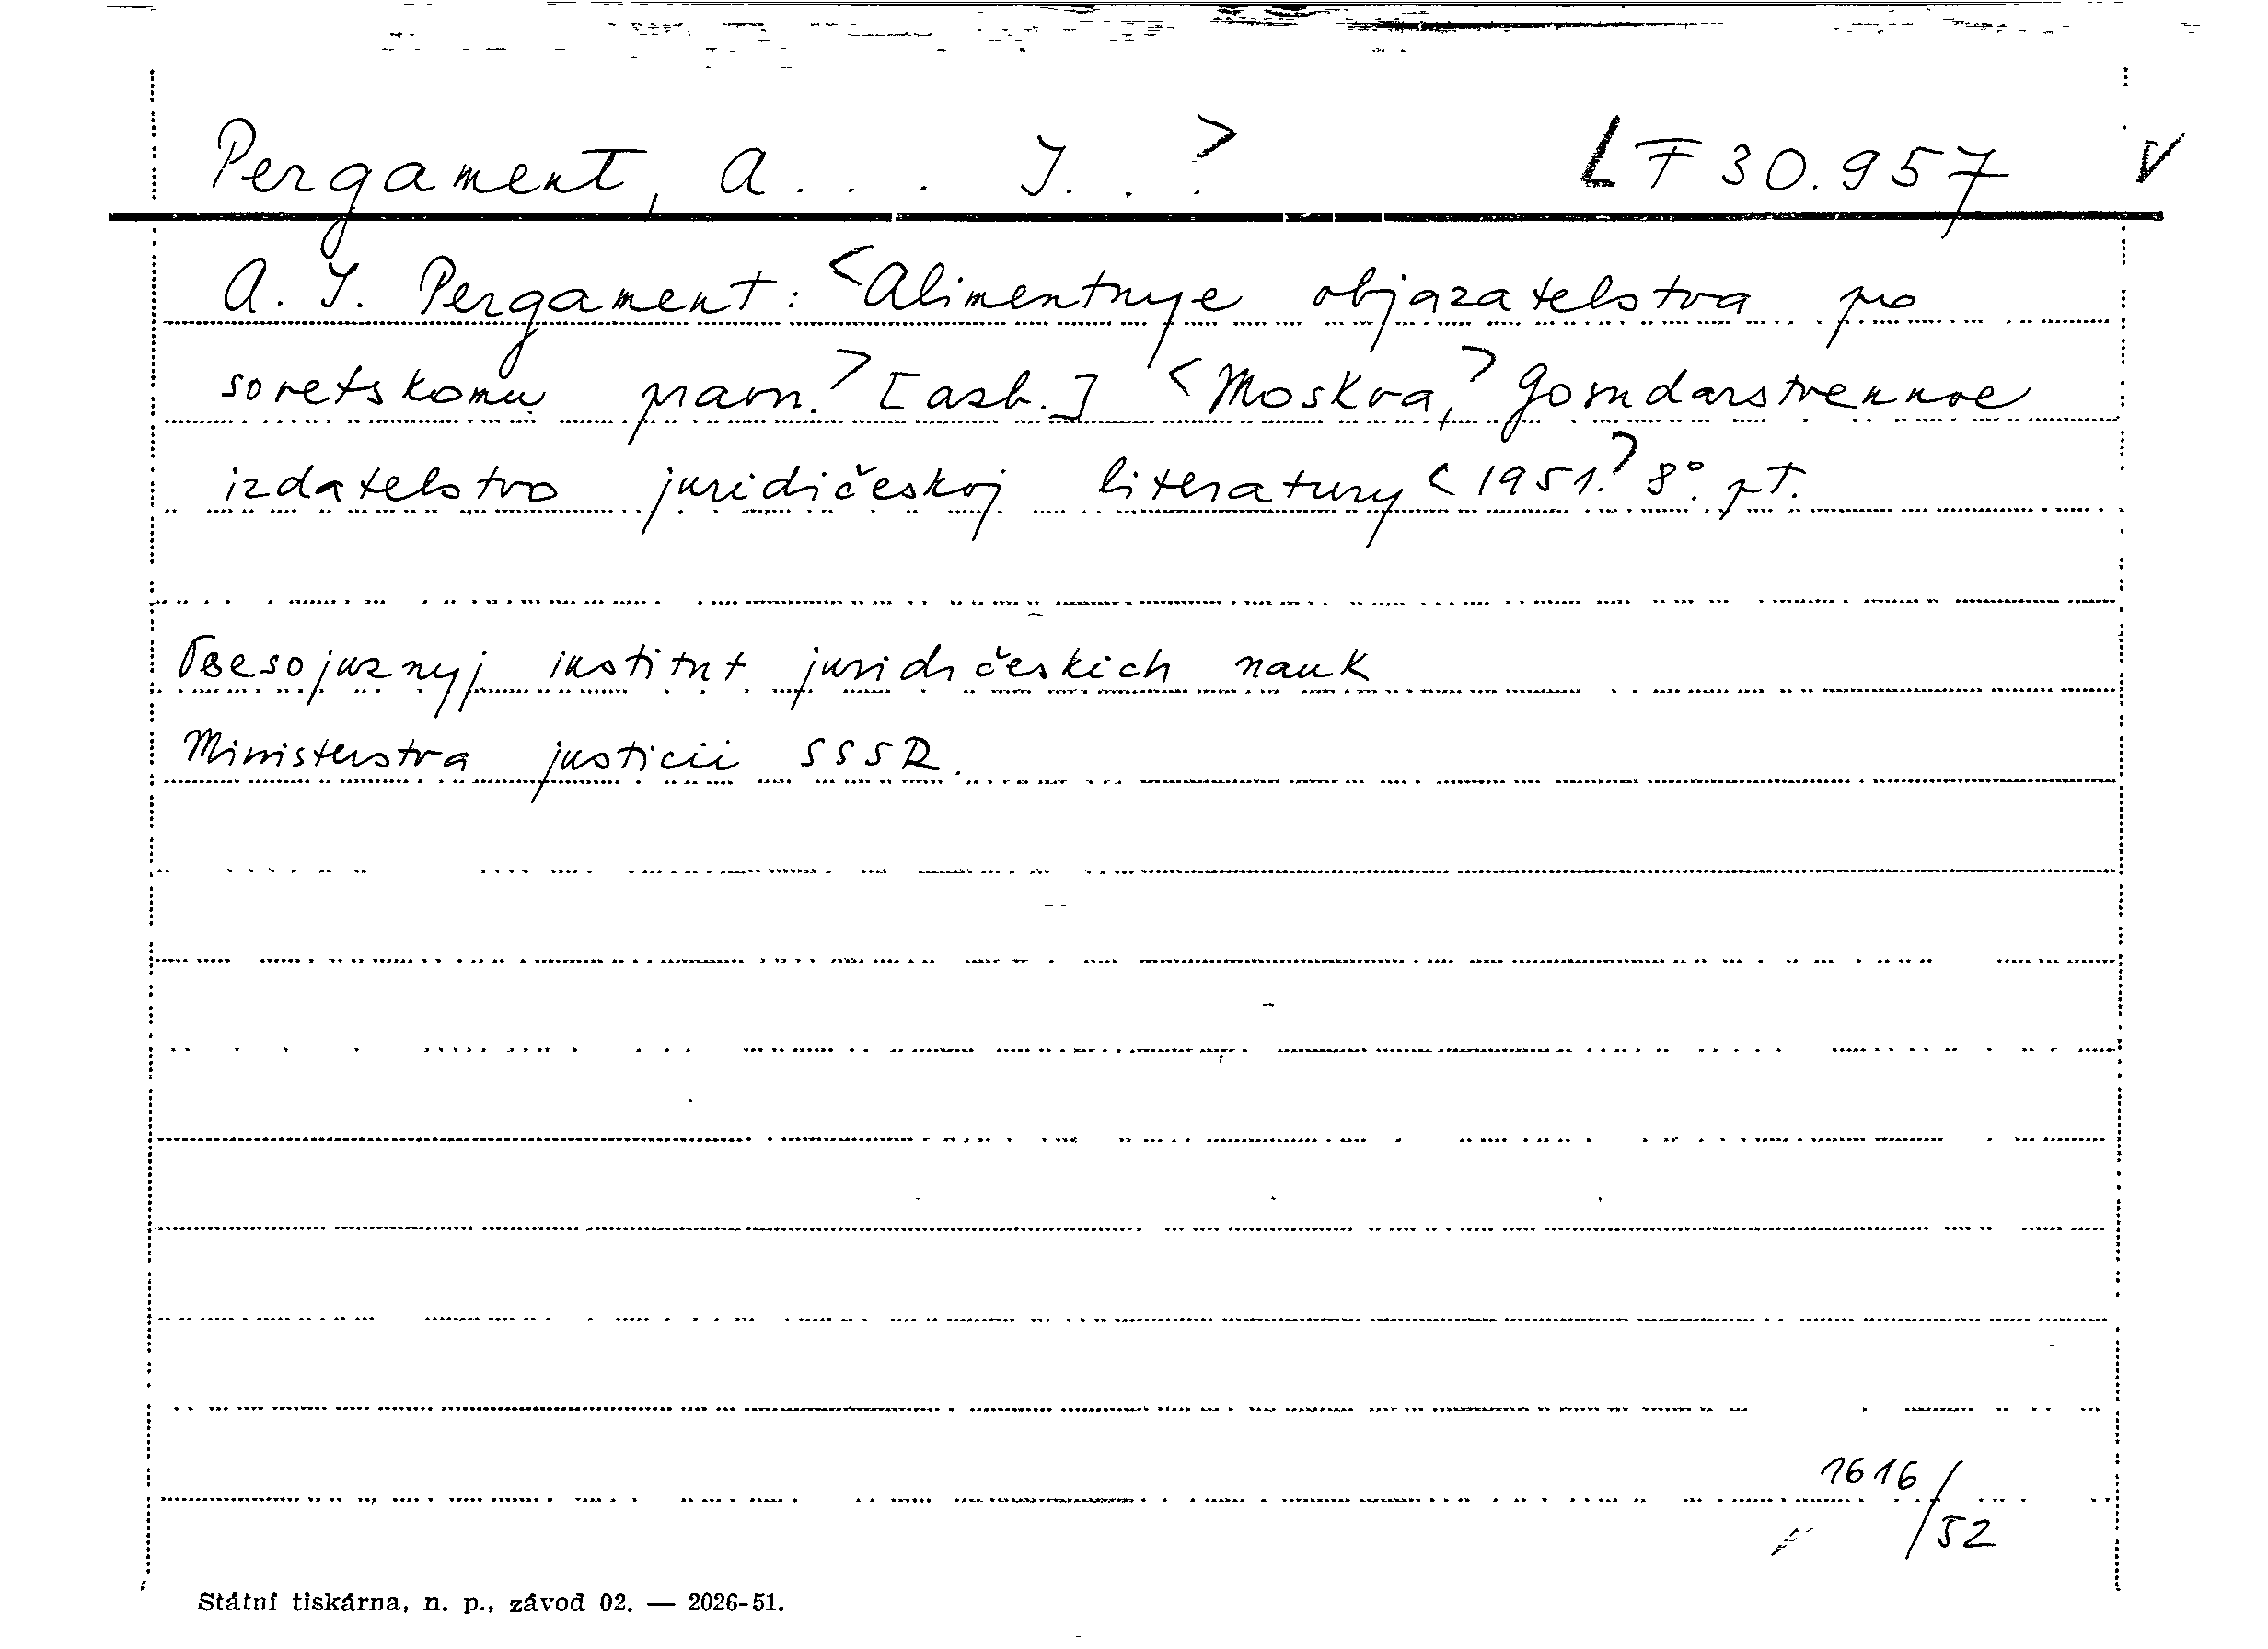 Pergament, A... I..> LF 30.957 V
A. I. Pergament: <Alimentnye objazatelstva po
sovetskomu pravu.> [azb.] <Moskva,> Gosudarstvennoe
izdatelstvo juridičeskoj literatury <1951.> 8°. pt.
Vsesojuznyj institut juridičeskich nauk
Ministerstva justicii SSSR.
1616/52
Státní tiskárna, n. p., závod 02. — 2026-51.